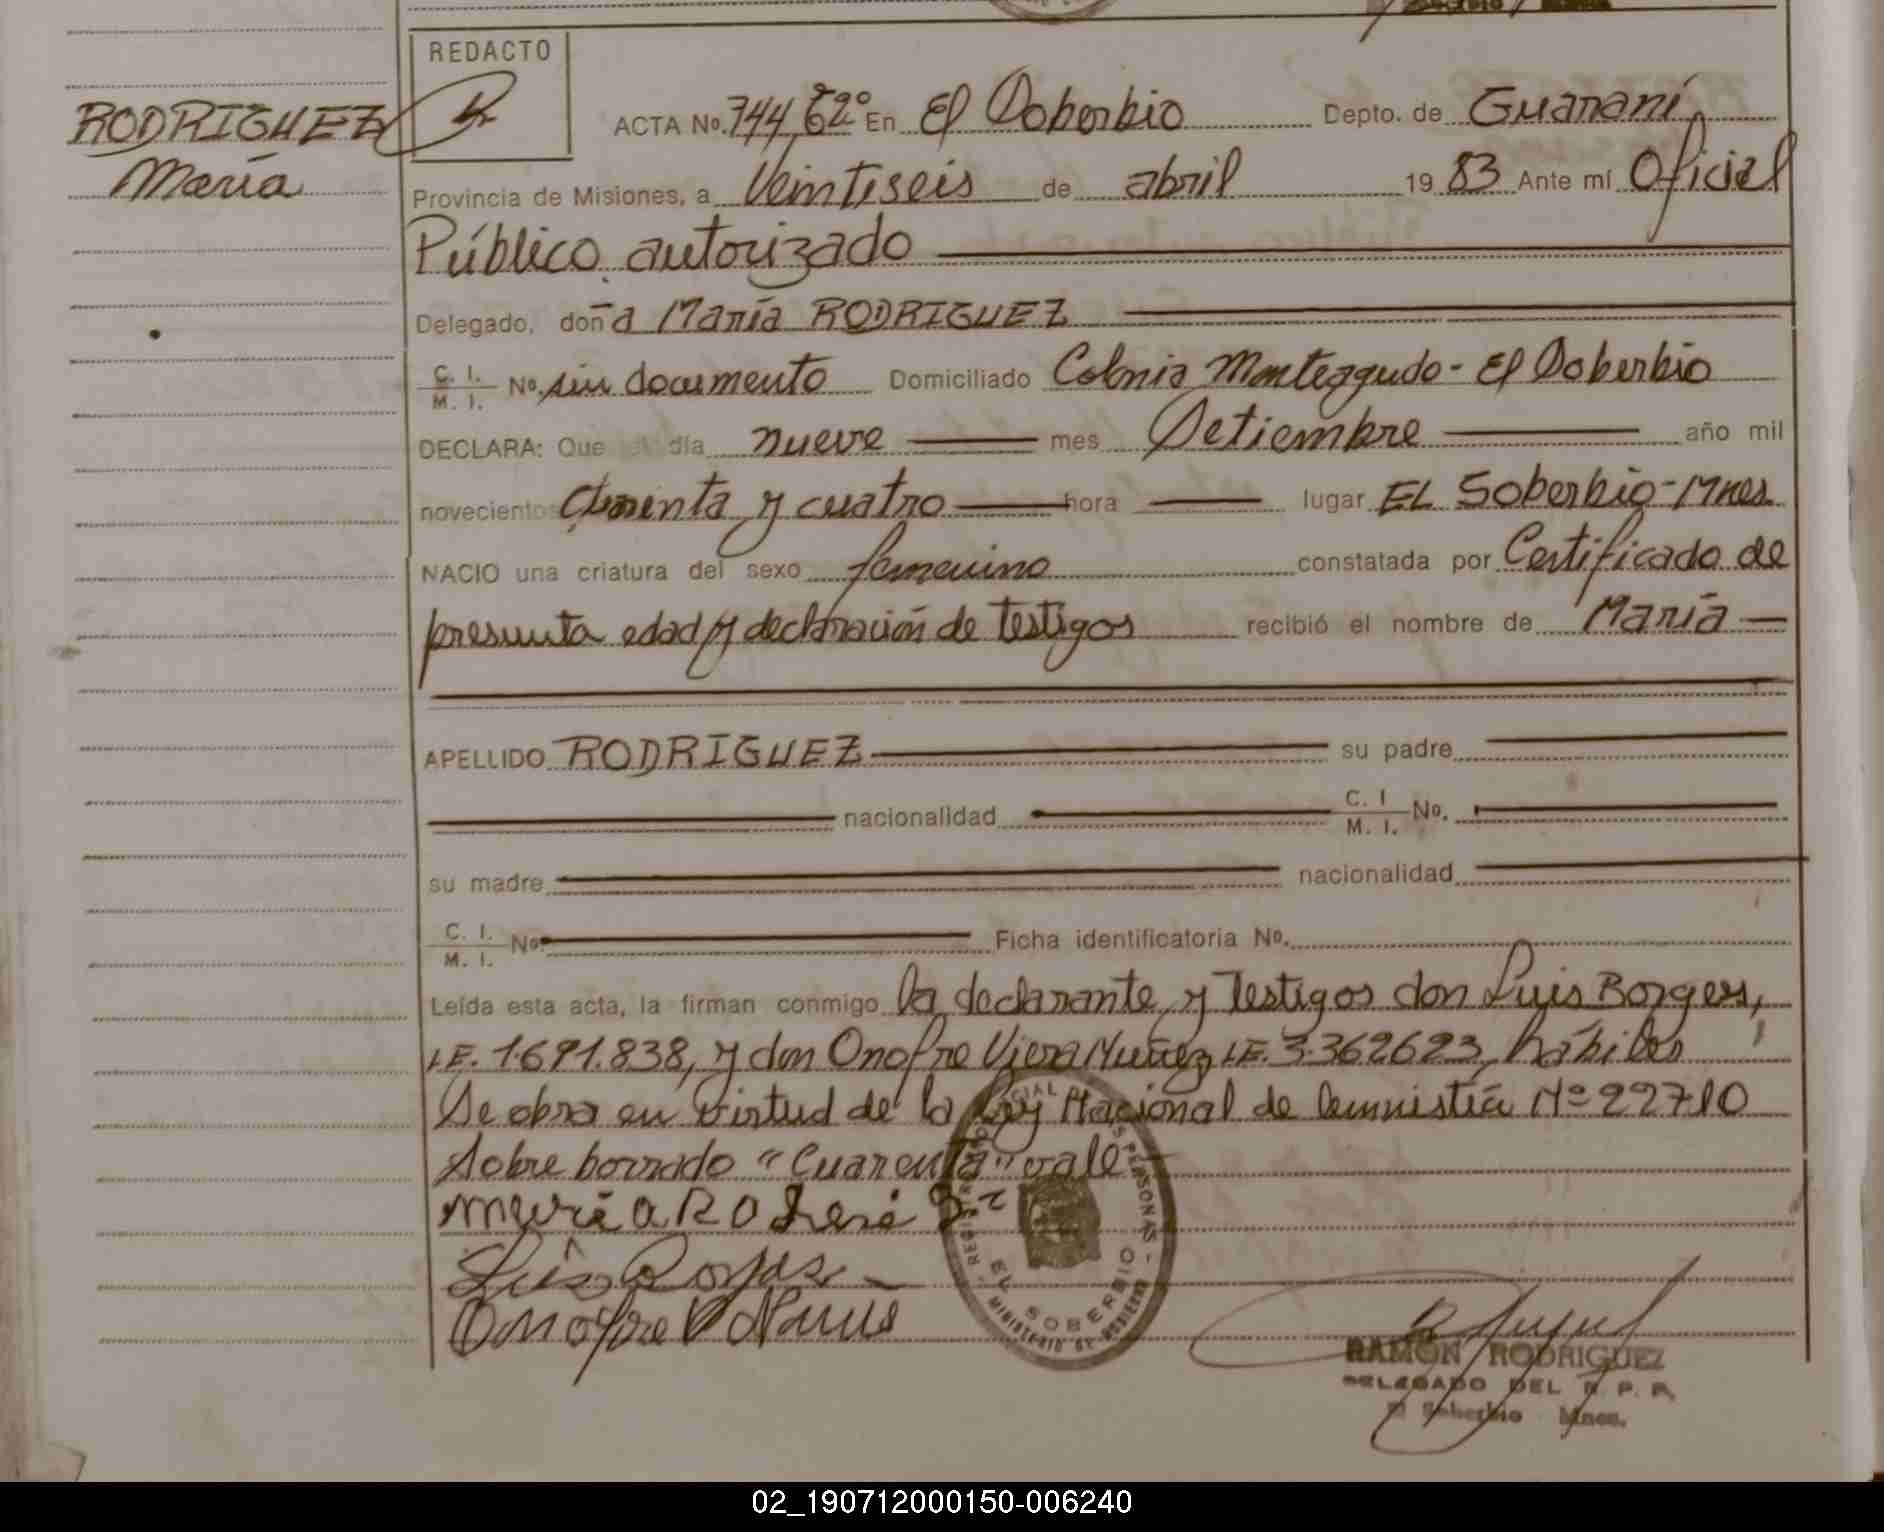 REDACTO
RODRIGUEZ
María
ACTA No. 744 62º En El Soberbio Depto. de Guaraní
Provincia de Misiones, a Veintiseis de abril 19 83 Ante mí Oficial
Público autorizado
Delegado, doña María RODRIGUEZ
C. I.
M. I. No. sin documento Domiciliado Colonia Monteagudo - El Soberbio
DECLARA: Que el día nueve mes Setiembre año mil
novecientos cuarenta y cuatro hora lugar EL Soberbio - Mnes.
NACIO una criatura del sexo femenino constatada por Certificado de
presunta edad y declaración de testigos recibió el nombre de María
APELLIDO RODRIGUEZ su padre
nacionalidad C. I
M. I. No.
su madre nacionalidad
C. I.
M. I. No. Ficha identificatoria No.
Leída esta acta, la firman conmigo la declarante y testigos don Luis Borges,
L.E. 1.691.838, y don Onofre Viera Nuñez L.E. 3.362623, hábiles
Se obra en virtud de la Ley Nacional de Amnistía Nº 22710
Sobre borrado "Cuarenta" vale
EL SOBERBIO
RAMON RODRIGUEZ
DELEGADO DEL R. P. P.
El Soberbio Mnes.
02_190712000150-006240